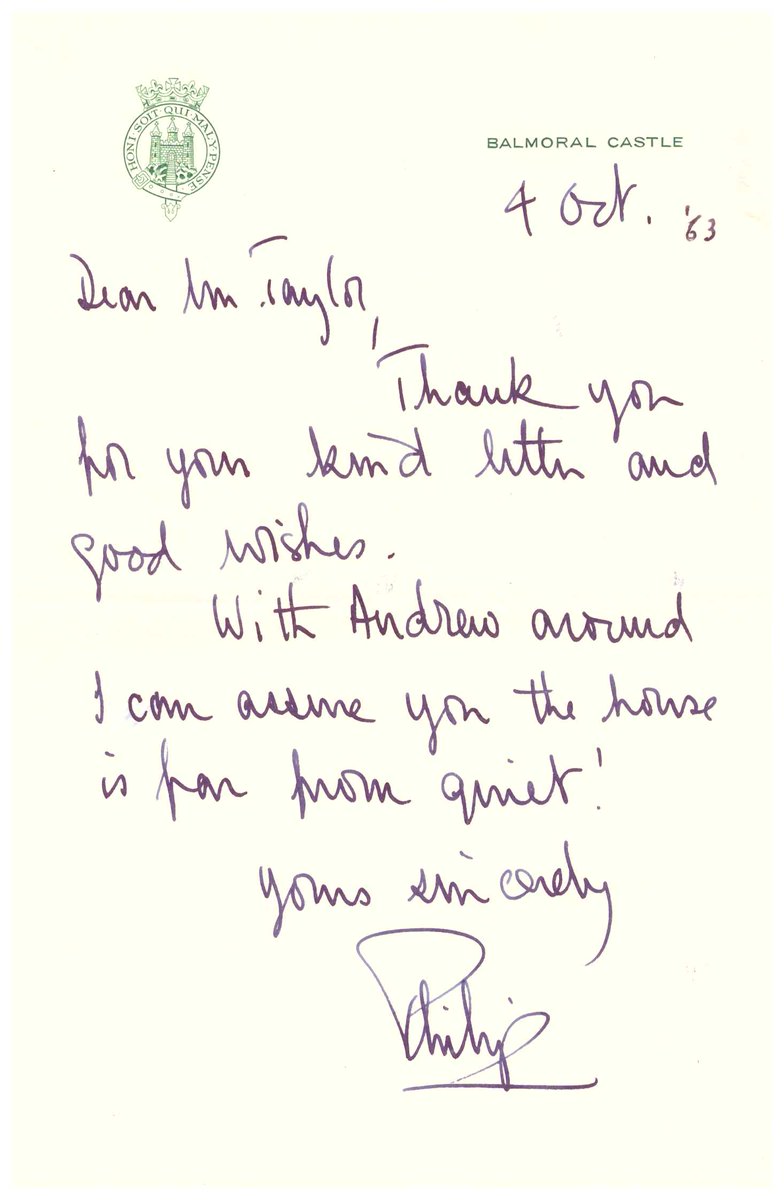 HONI·SOIT·QUI·MAL·Y·PENSE
BALMORAL CASTLE
4 Oct. '63
Dear Mr Taylor,
Thank you
for your kind letter and
good wishes.
With Andrew around
I can assure you the house
is far from quiet!
yours sincerely
Philip